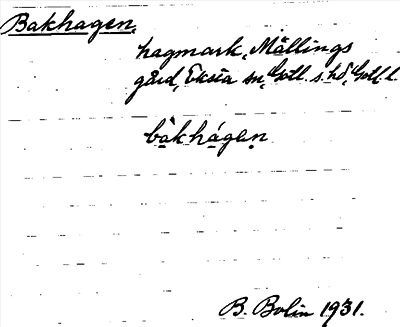 Bakhagen,
hagmark, Mällings
gård, Eksta sn, Gotl. s. hd, Gotl. l.
bakhagen
B. Bolin 1931.